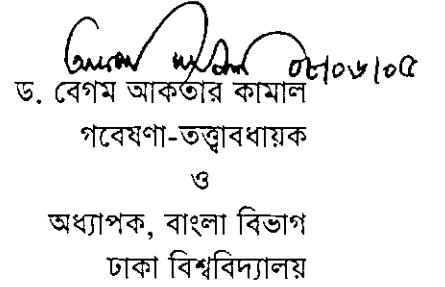 ০৮/০৬/০৫
ড. বেগম আকতার কামাল
গবেষণা-তত্ত্বাবধায়ক
ও
অধ্যাপক, বাংলা বিভাগ
ঢাকা বিশ্ববিদ্যালয়